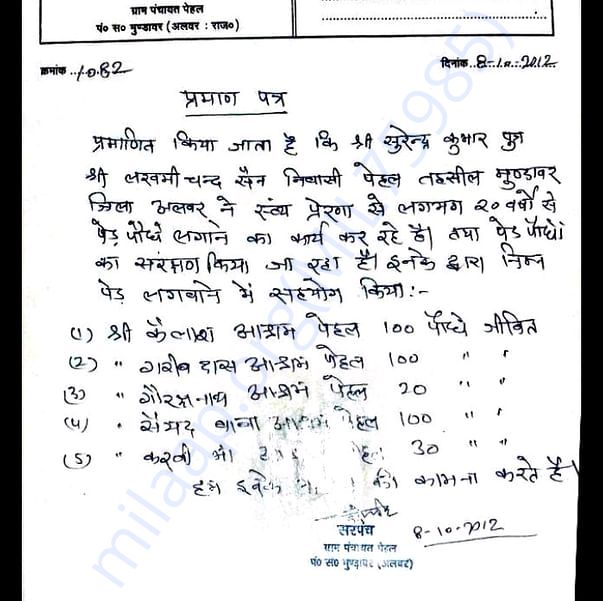 ग्राम पंचायत पेहल
पं० स० मुण्डावर (अलवर : राज०)
क्रमांक ..1082
दिनांक ..8-10-2012
प्रमाण पत्र
प्रमाणित किया जाता है कि श्री सुरेन्द्र कुमार पुत्र
श्री लखमी चन्द सैन निवासी पेहल तहसील मुण्डावर
जिला अलवर ने स्वंय प्रेरणा से लगभग २० वर्षों से
पेड़ पौधे लगाने का कार्य कर रहे है। तथा पेड़ पौधों
का संरक्षण किया जा रहा है। इनके द्वारा निम्न
पेड़ लगवाने में सहयोग किया:-
(1) श्री कैलाश आश्रम पेहल 100 पौधे जीवित
(2) " गरीब दास आश्रम पेहल 100 " "
(3) " गौरक्षनाथ आश्रम पेहल 20 " "
(4) " सैयद बाबा आश्रम पेहल 100 " "
(5) " करवी 30 " "
हम इनके की कामना करते है।
सरपंच
8-10-2012
ग्राम पंचायत पेहल
पं० स० मुण्डावर (अलवर)
milaap.org(MIL75985)